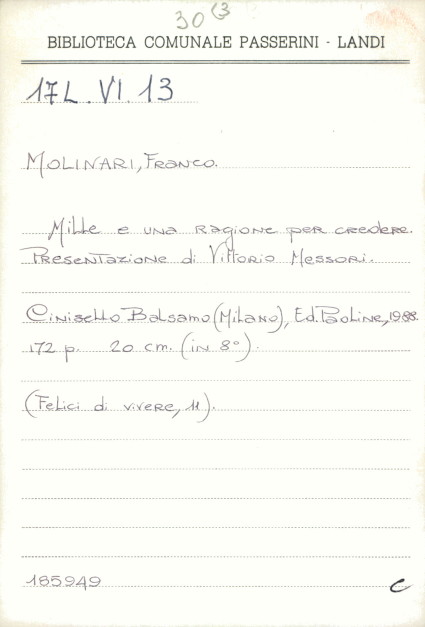 30 (3
BIBLIOTECA COMUNALE PASSERINI - LANDI
17L.VI.13
MOLINARI, Franco.
Mille e una ragione per credere.
Presentazione di Vittorio Messori.
Cinisello Balsamo (Milano), Ed. Paoline, 1988.
172 p. 20 cm. (in 8°).
(Felici di vivere, 11).
185949
C